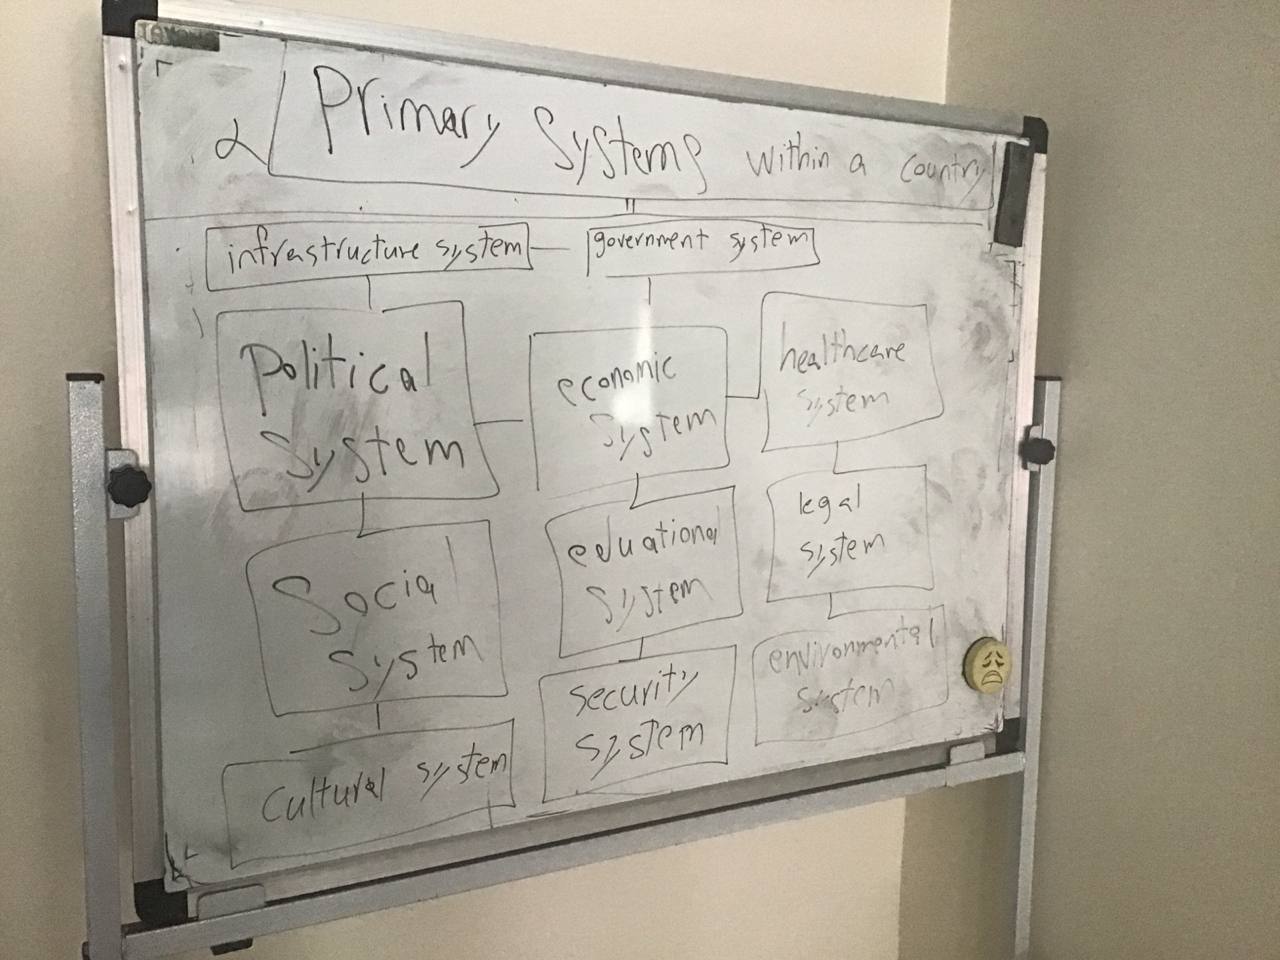 Primary Systems within a country
infrastructure system
government system
Political
System
economic
system
healthcare
system
Social
System
eduational
system
legal
system
Cultural system
security
system
environmental
system